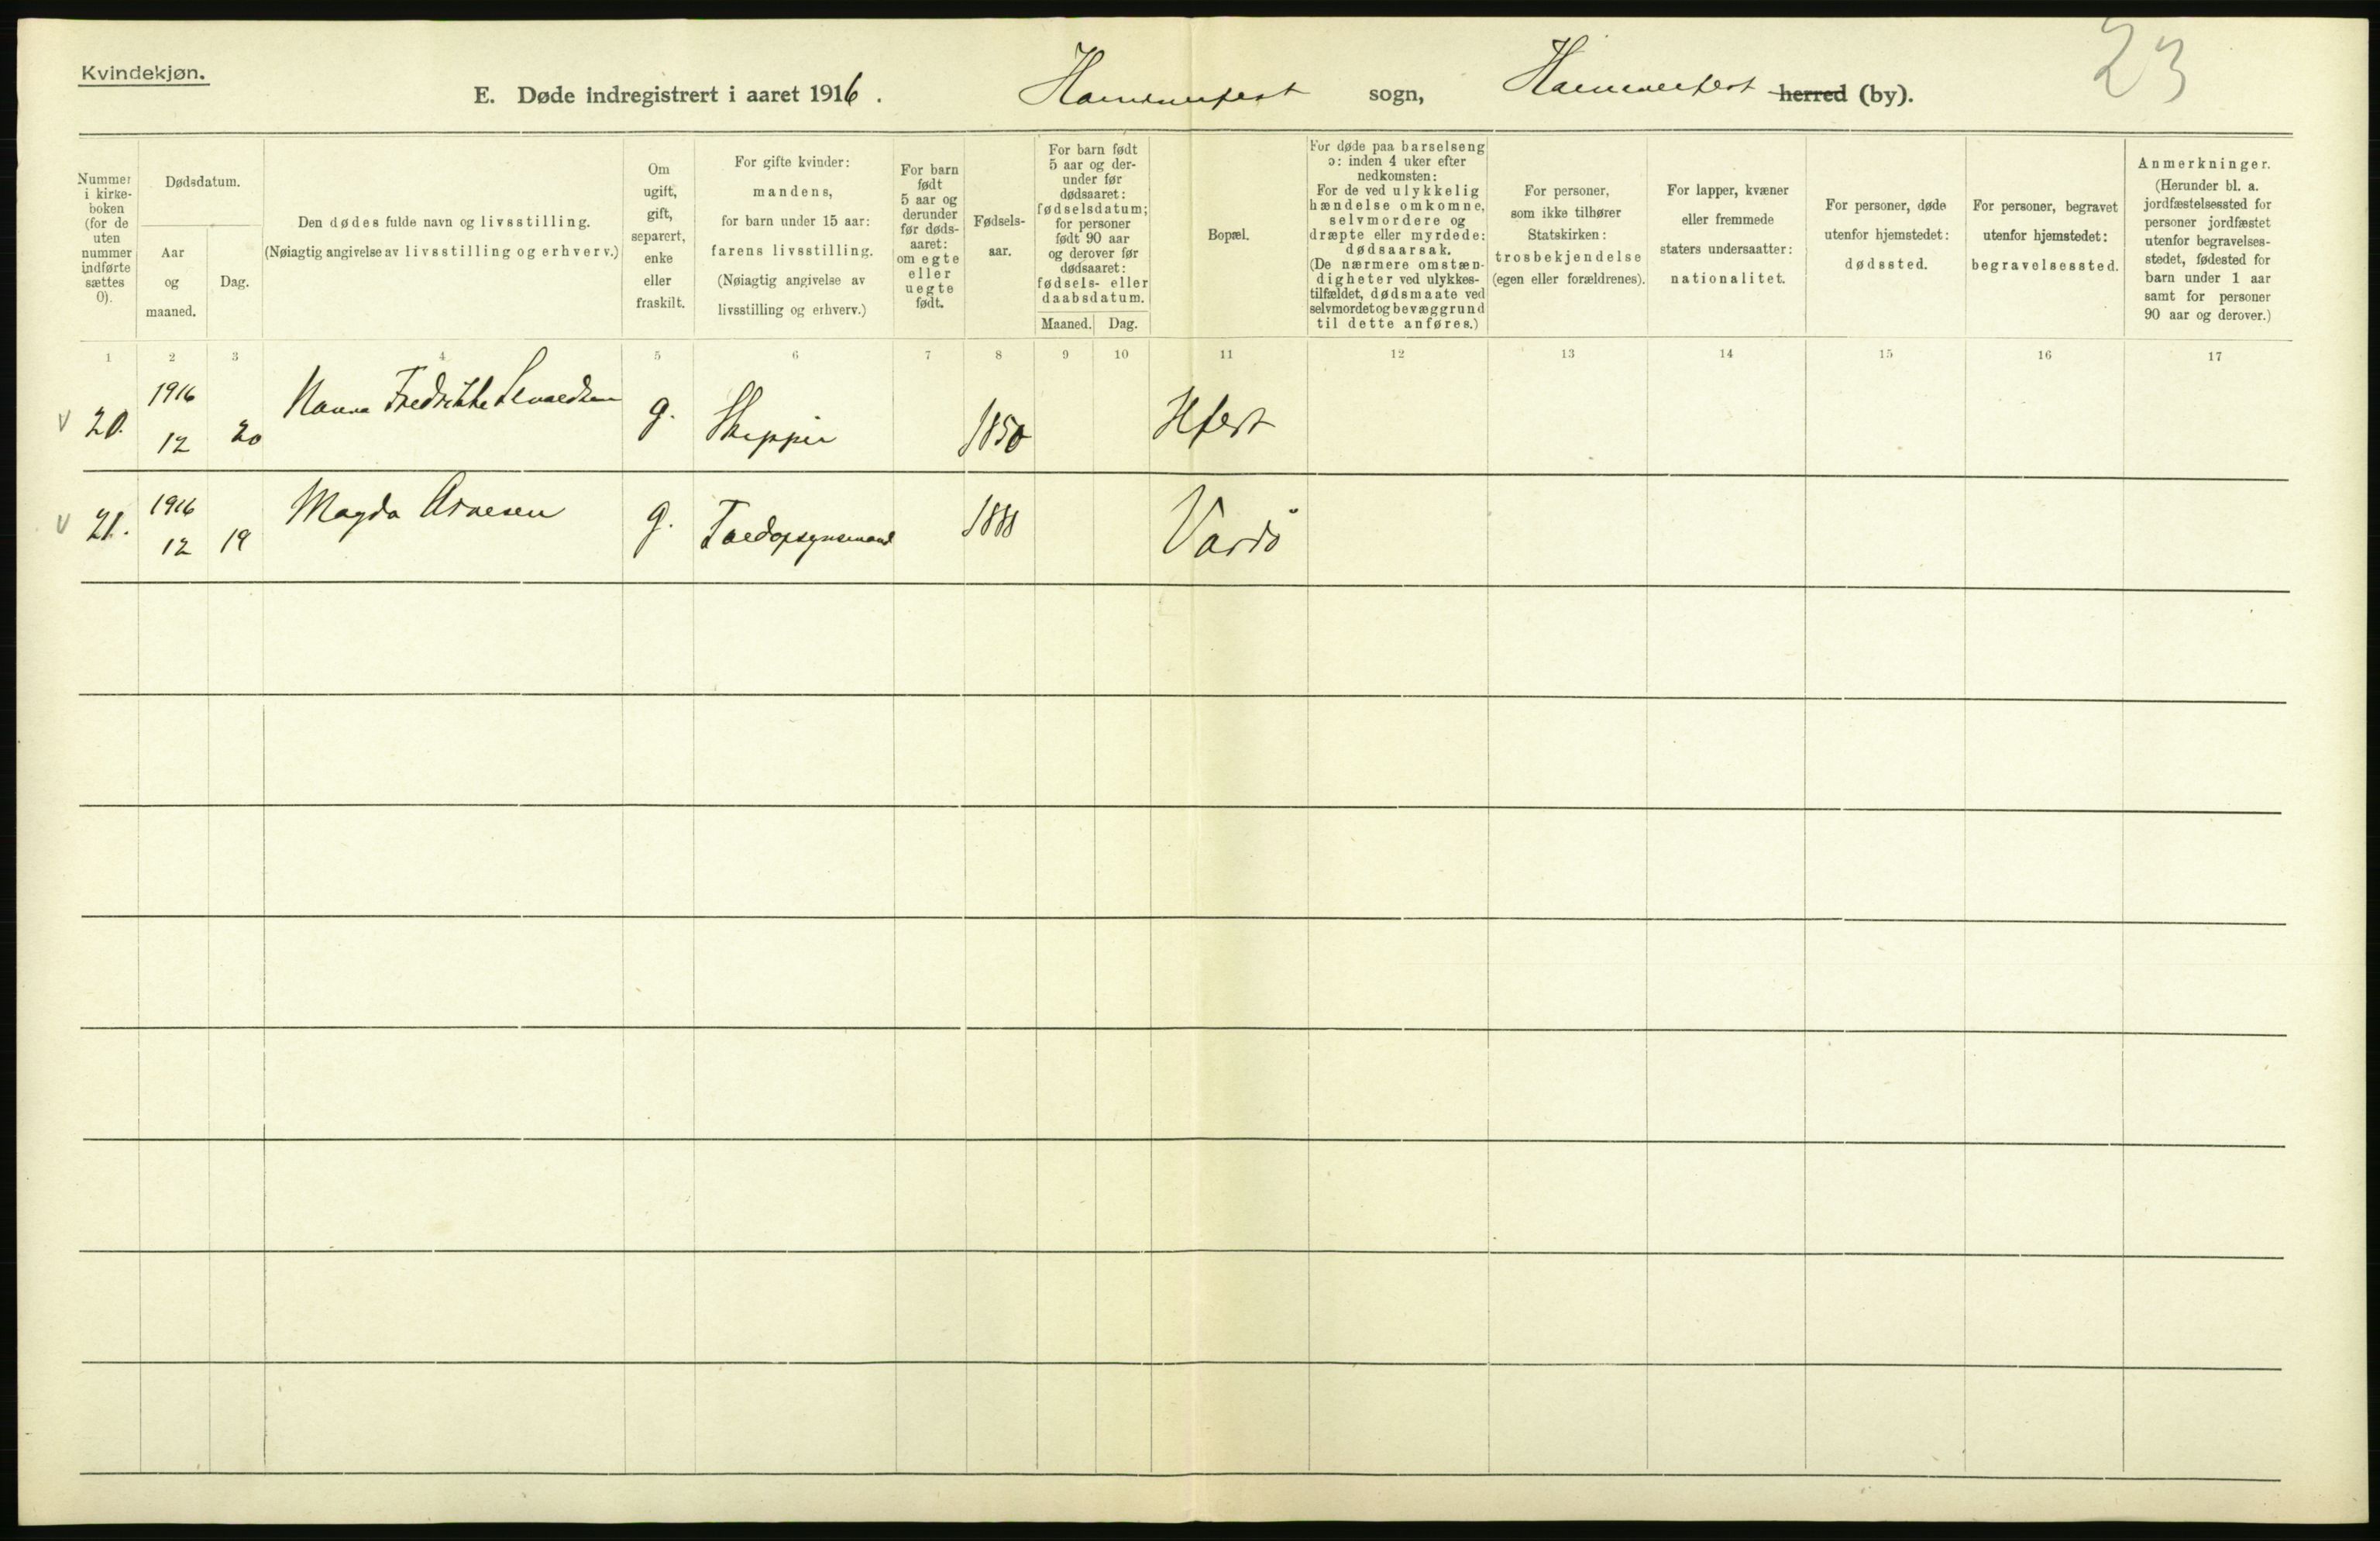 Kvindekjøn.
23
E. Døde indregistrert i aaret 1916. Hammerfest sogn, Hammerfest herred (by).
Nummer i kirke-boken (for de uten nummer indførte sættes 0).
Dødsdatum.
Aar og maaned.
Dag.
Den dødes fulde navn og livsstilling.
(Nøiagtig angivelse av livsstilling og erhverv.)
Om ugift, gift, separert, enke eller fraskilt.
For gifte kvinder: mandens, for barn under 15 aar: farens livsstilling. (Nøiagtig angivelse av livsstilling og erhverv.)
For barn født 5 aar og derunder før døds-aaret: om egte eller uegte født.
Fødsels-aar.
For barn født 5 aar og der-under før dødsaaret: fødselsdatum; for personer født 90 aar og derover før dødsaaret: fødsels- eller daabsdatum.
Maaned. Dag.
Bopæl.
For døde paa barselseng ɔ: inden 4 uker efter nedkomsten: For de ved ulykkelig hændelse omkomne, selvmordere og dræpte eller myrdede: dødsaarsak. (De nærmere omstæn-digheter ved ulykkes-tilfældet, dødsmaate ved selvmordet og bevæggrund til dette anføres.)
For personer, som ikke tilhører Statskirken: trosbekjendelse (egen eller forældrenes).
For lapper, kvæner eller fremmede staters undersaatter: nationalitet.
For personer, døde utenfor hjemstedet: dødssted.
For personer, begravet utenfor hjemstedet: begravelsessted.
Anmerkninger. (Herunder bl. a. jordfæstelsessted for personer jordfæstet utenfor begravelses-stedet, fødested for barn under 1 aar samt for personer 90 aar og derover.)
1 2 3 4 5 6 7 8 9 10 11 12 13 14 15 16 17
V 20. 1916 12 20 Fredrikke g. Skipper 1850 Hfest
V 21. 1916 12 19 Magda Arnesen g. 1888 Vardö